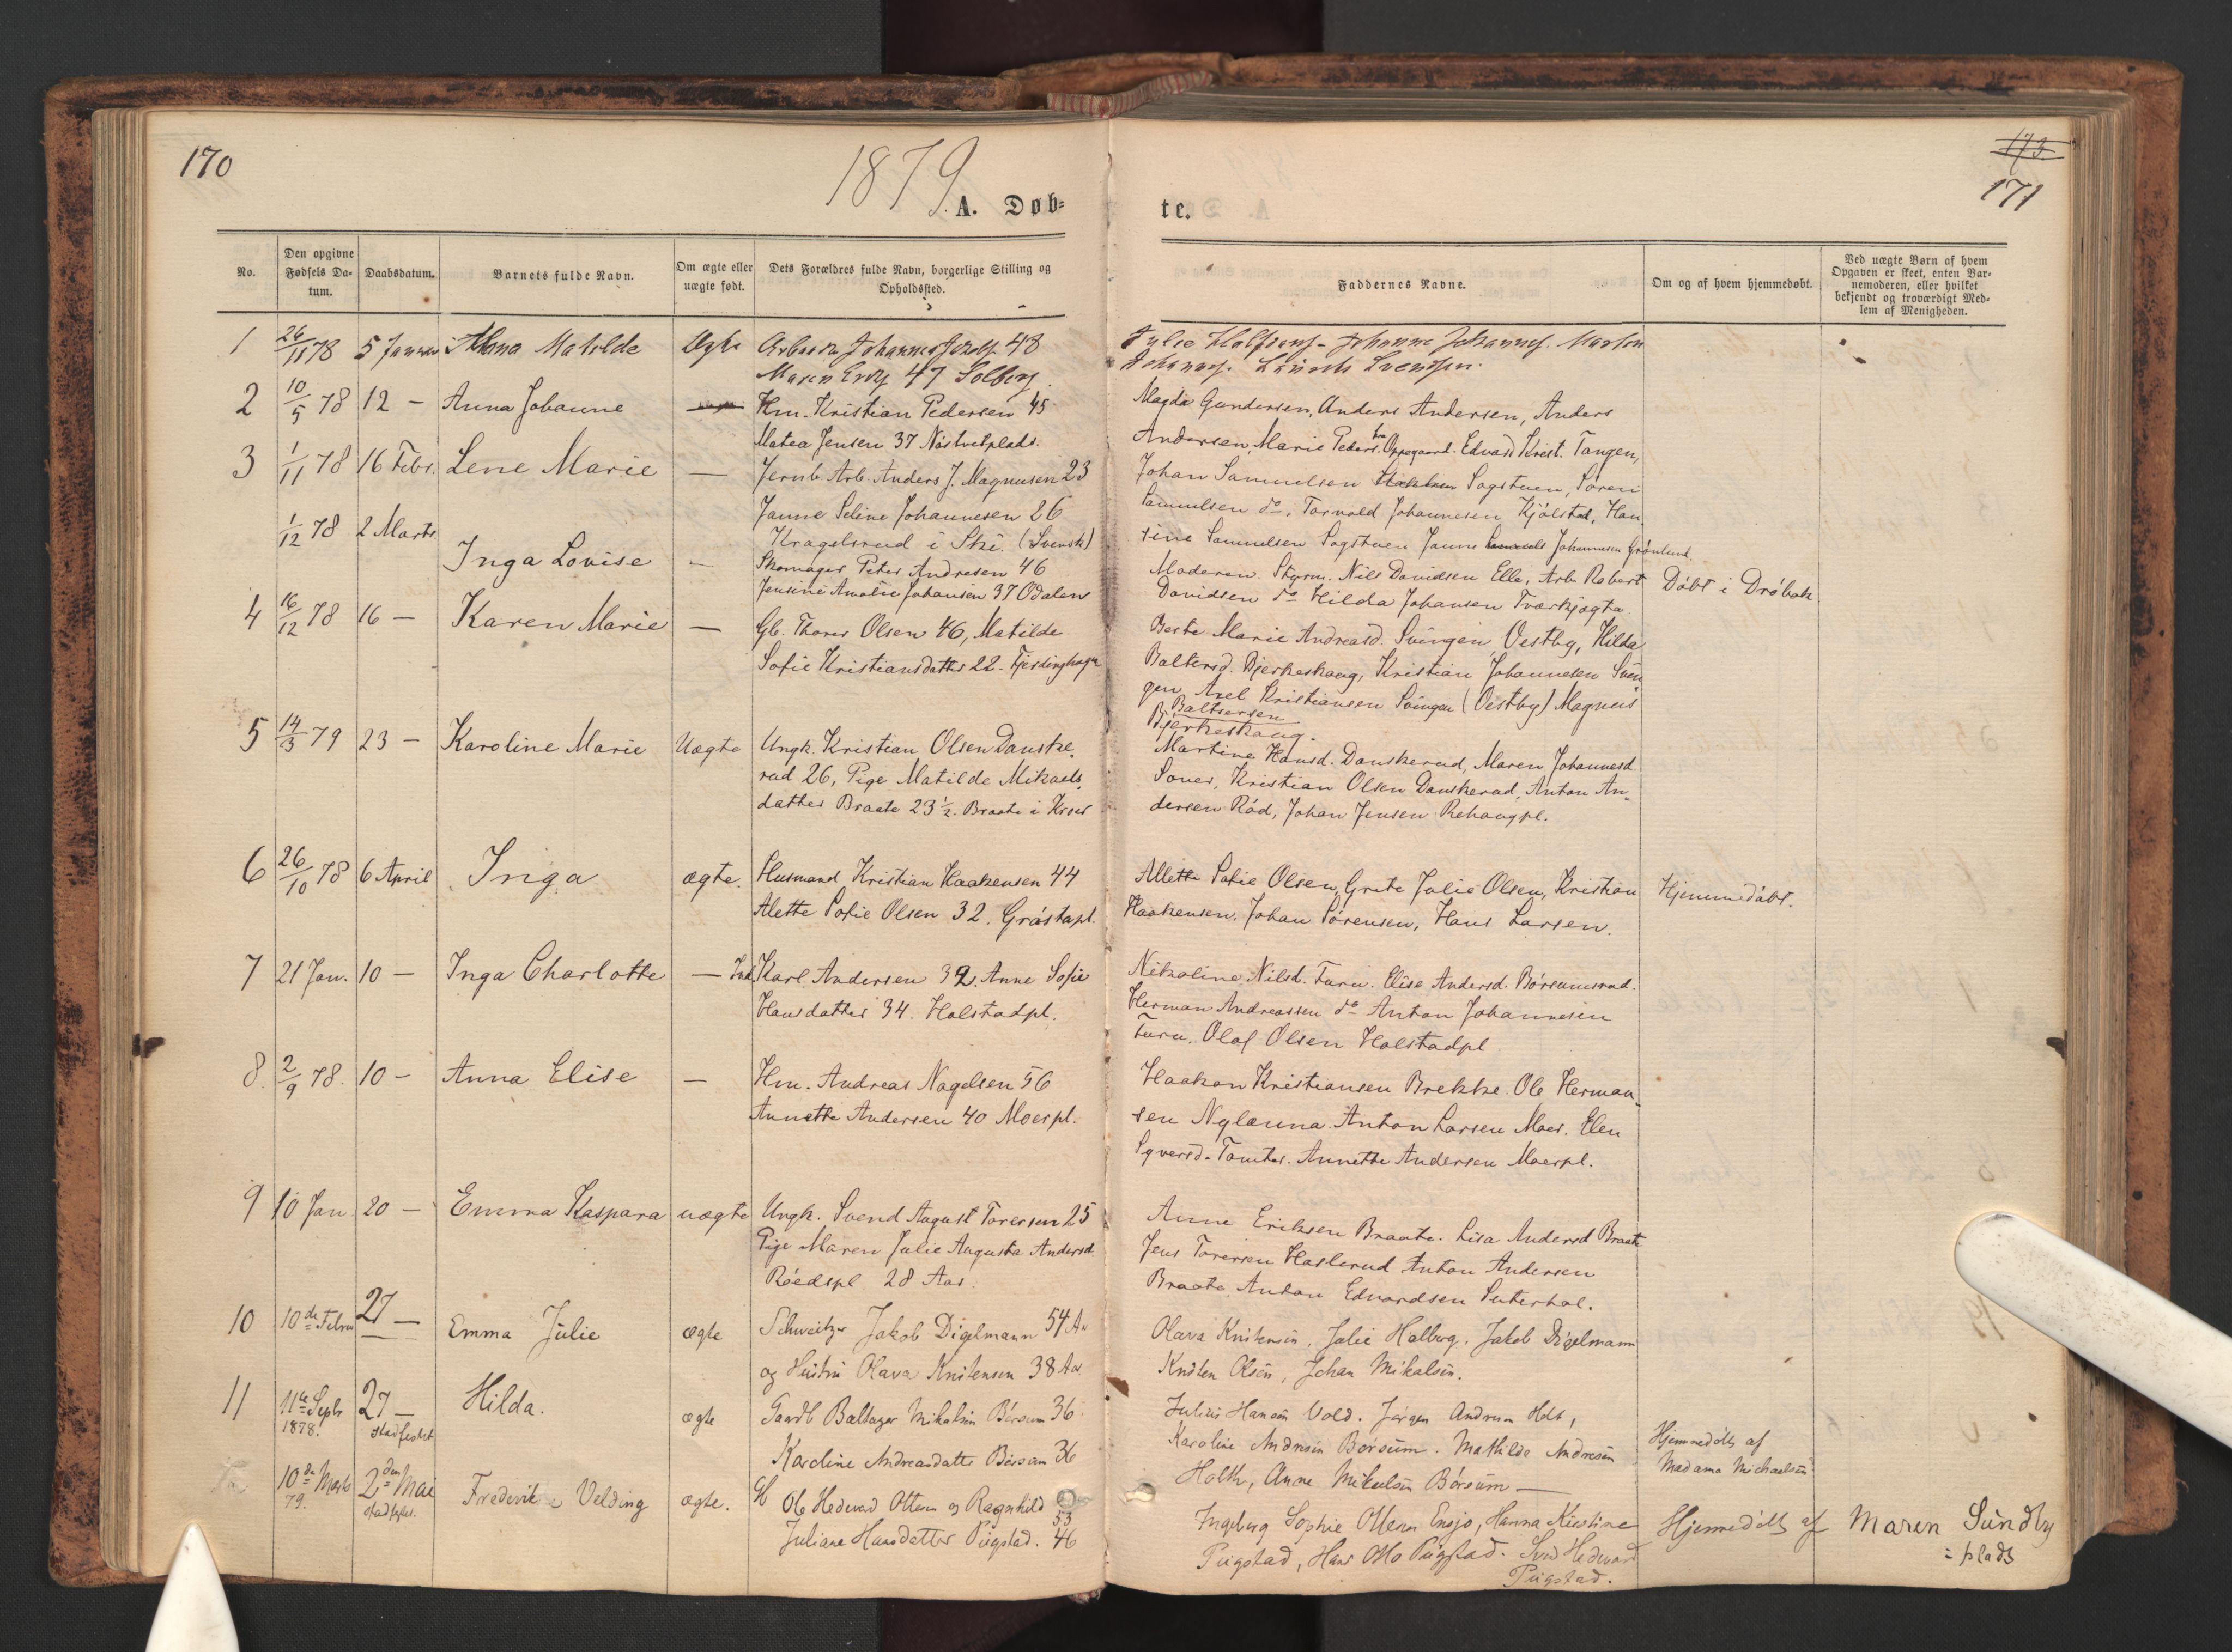 170
1879
A. Døb=
te.
173
171
No.
Den opgivne Fødsels Da-tum.
Daabsdatum.
Barnets fulde Navn.
Om ægte eller uægte født.
Dets Forældres fulde Navn, borgerlige Stilling og Opholdssted.
Faddernes Navne.
Om og af hvem hjemmedøbt.
Ved uægte Børn af hvem
Opgaven er skeet, enten Bar-
nemoderen, eller hvilket
bekjendt og troværdigt Med-
lem af Menigheden.
1 26/11 78 5 Januar Matilde Ægte Johannes 48
Maren 47 Solberg
Johanne Johannes. Marten
Svendsen.
2 10/5 78 12 — Anna Johanne — Hm. Kristian Pedersen 45
Matea Jensen 37 Nástvetplads.
Magda Gundersen, Anders Andersen, Anders
Andersen, Marie Peders. fra Oppegaard. Edvard Krist. Tangen,
3 1/11 78 16 Febr. Lene Marie — Jernb. Arb. Anders J. Magnusen 23
Janne Seline Johannesen 26
Kragelsrud i Ski. (Svensk)
Johan Samuelsen Sagstuen, Søren
Samuelsen do, Torvald Johannesen Kjólstad, Han
sine Samuelsen Sagstuen Janne Johannesen Grönlund.
1/12 78 2 Marts Inga Lovise — Skomager Peter Andresen 46
Jensine Amalie Johansen 37 Odalen
Moderen. Styrm. Nils Davidsen Elle, Arb. Robert
Davidsen do Hilda Johansen Tværkjægta
Döbt i Dröbak
4 16/12 78 16 — Karen Marie — Gb. Thorer Olsen 46, Matilde
Sofie Kristiansdatter 22.
Berte Marie Andreasd. Svingen, Vestby, Hilda
Baltersd. Bjerkeskaug, Kristian Johannesen Svin
gen, Axel Kristiansen Svingen (Vestby) Magnus
Baltsersen
Bjerkeskaug.
5 14/3 79 23 — Karoline Marie Uægte Ungk. Kristian Olsen Danske
rud 26, Pige Matilde Mikaels
datter Braate 23½. Braate i Kroer
Martine Hansd. Danskerud, Maren Johannesd.
Soner, Kristian Olsen Danskerud, Anton An=
dersen Röd, Johan Jensen Rehaugpl.
6 26/10 78 6 April Inga ægte. Husmand Kristian Haakensen 44
Alette Sofie Olsen 32. Gróstapl.
Allette Sofie Olsen, Grete Julie Olsen, Kristian
Haakensen, Johan Sørensen, Hans Larsen.
Hjemmedöbt.
7 21 Jan. 10 — Inga Charlotte — Ind. Karl Andersen 32. Anne Sofie
Hansdatter 34. Holstadpl.
Nikoline Nilsd. Furu. Elise Andersd. Börsumsrud.
Herman Andreassen do Anton Johannesen
Furu. Olaf Olsen Holstadpl
8. 2/9 78. 10 — Anna Elise — Hm. Andreas Nagelsen 56
Annette Andersen 40 Moerpl.
Haakon Kristiansen Brekke. Ole Herman=
sen Nylænna. Anton Larsen Moer. Elen
Syversd. Tomter. Annette Andersen Moerpl.
9 10 Jan. 20 — Emma Kaspara uægte Ungk. Svend August Toresen 25
Pige Maren Julie Augusta Andersd.
Róedspl 28 Aar.
Anne Eriksen Braate. Lisa Andersd Braate
Jens Toresen Haslerud Anton Andersen
Braate Anton Edvardsen Seterhol.
10 10de Febru 27 — Emma Julie ægte Schweitzer Jakob Digelmann 54 Aar
og Hustru Olava Knutensen 38 Aar
Olava Knutensen, Julie Halberg, Jakob Digelmann
Knuten Olsen, Johan Mikalsen.
11 11te Septr 1878. 27 — stadfestet Hilda. ægte Gaardb Baltazer Mikalsen Börsum 36
Karoline Andreasdatter Börsum 36
Julius Hansen Vold. Jörgen Andresen Holt,
Karoline Andresen Börsum. Mathilde Andresen
Holth, Anne Mikelsen Börsum —
Hjemmedöbt af
Madama Michaelsen
10de Marts 79. 2den Mai stadfestet. Frederikke Velding ægte. Ole Hedevard Ottersen og Ragnhild 53
Juliane Hansdatter Pügstad. 46
Ingeborg Sophie Ottersen Ensjo, Hanna Kirstine
Pügstad, Hans Otto Pügstad. Svend Hedevard
Pügstad.
Hjemmedöbt af Maren Sündby
=plads